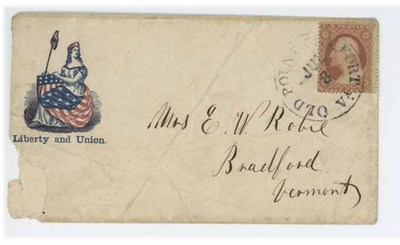 OLD POINT COMFORT VA
JUN
8
Liberty and Union.
Mrs E. W. Robie
Bradford
Vermont